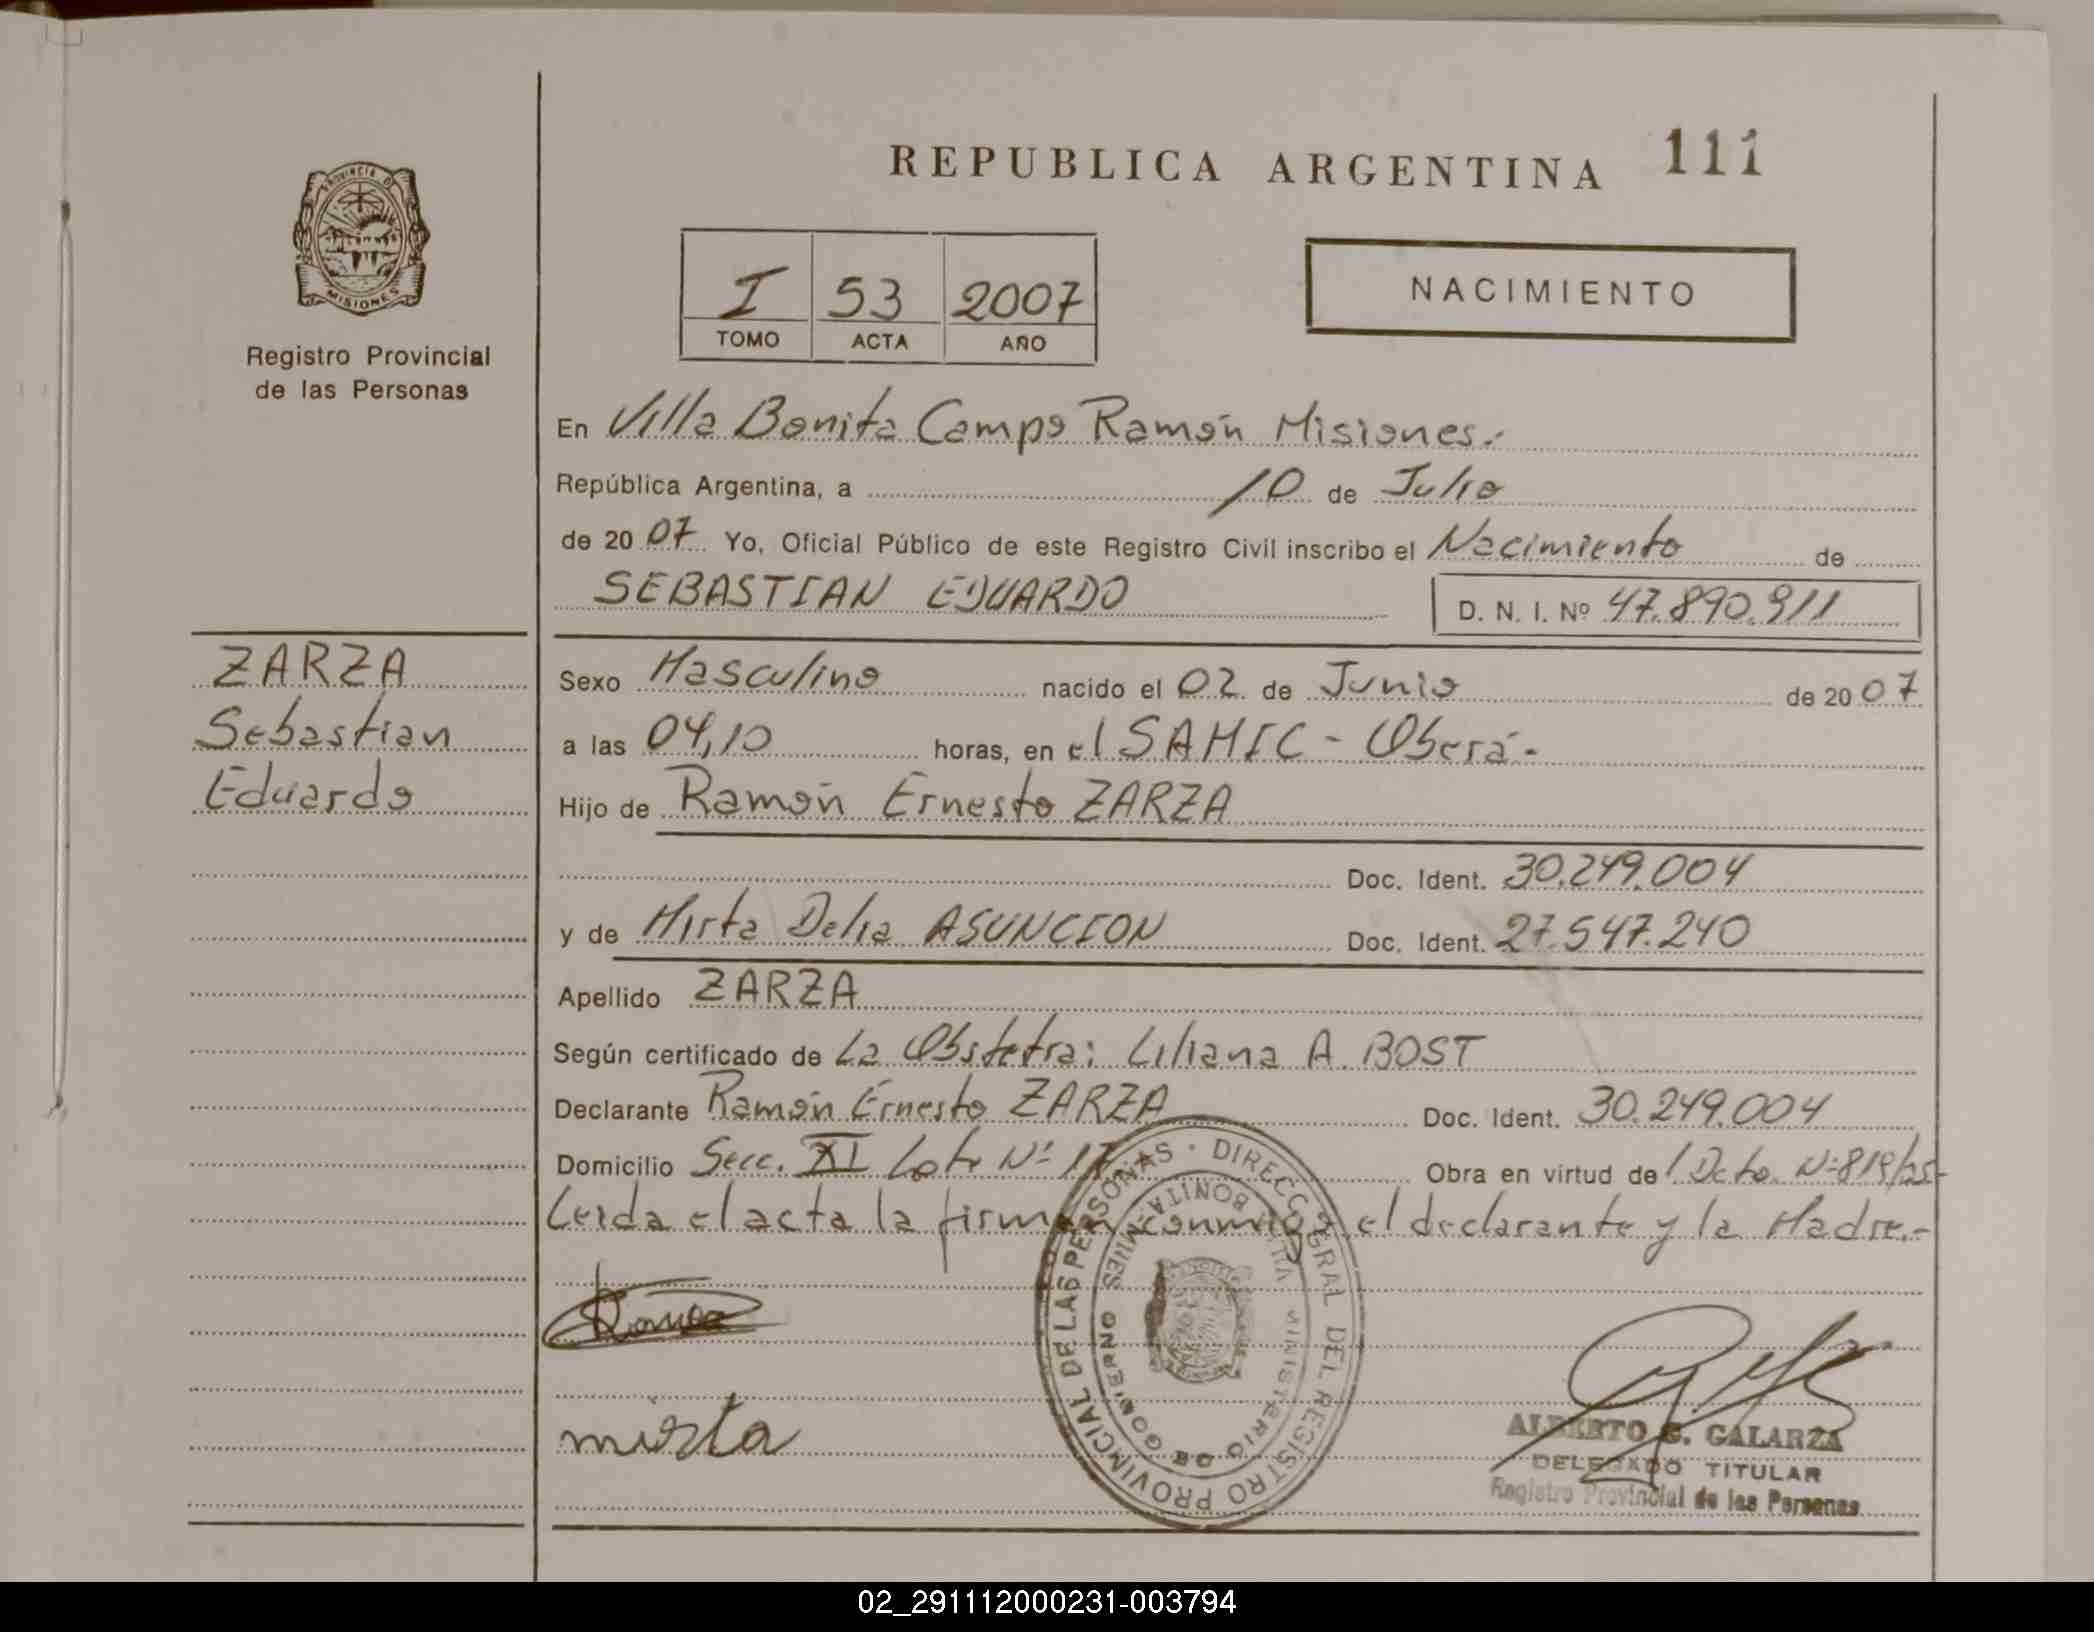 REPUBLICA ARGENTINA 111
PROVINCIA D
MISIONES
Registro Provincial
de las Personas
I 53 2007
TOMO ACTA AÑO
NACIMIENTO
En Villa Bonita Campo Ramón Misiones.-
República Argentina, a 10 de Julio
de 2007 Yo, Oficial Público de este Registro Civil inscribo el Nacimiento de
SEBASTIAN EDUARDO
D. N. I. Nº 47.890.911
ZARZA
Sebastian
Eduardo
Sexo Masculino nacido el 02 de Junio de 2007
a las 04,10 horas, en el SAMIC - Oberá.-
Hijo de Ramón Ernesto ZARZA
Doc. Ident. 30.249.004
y de Mirta Delia ASUNCION Doc. Ident. 27.547.240
Apellido ZARZA
Según certificado de La Obstetra: Liliana A. BOST
Declarante Ramón Ernesto ZARZA Doc. Ident. 30.249.004
Domicilio Secc. XI Lote Nº 17 Obra en virtud del Dcto. Nº 819/25-
Leida el acta la firman conmigo el declarante y la Madre.-
DIRECC. GRAL DEL REGISTRO PROVINCIAL DE LAS PERSONAS
MINISTERIO DE GOBIERNO
VILLA BONITA - MNES
mirta
ALBERTO G. GALARZA
DELEGADO TITULAR
Registro Provincial de las Personas
02_291112000231-003794